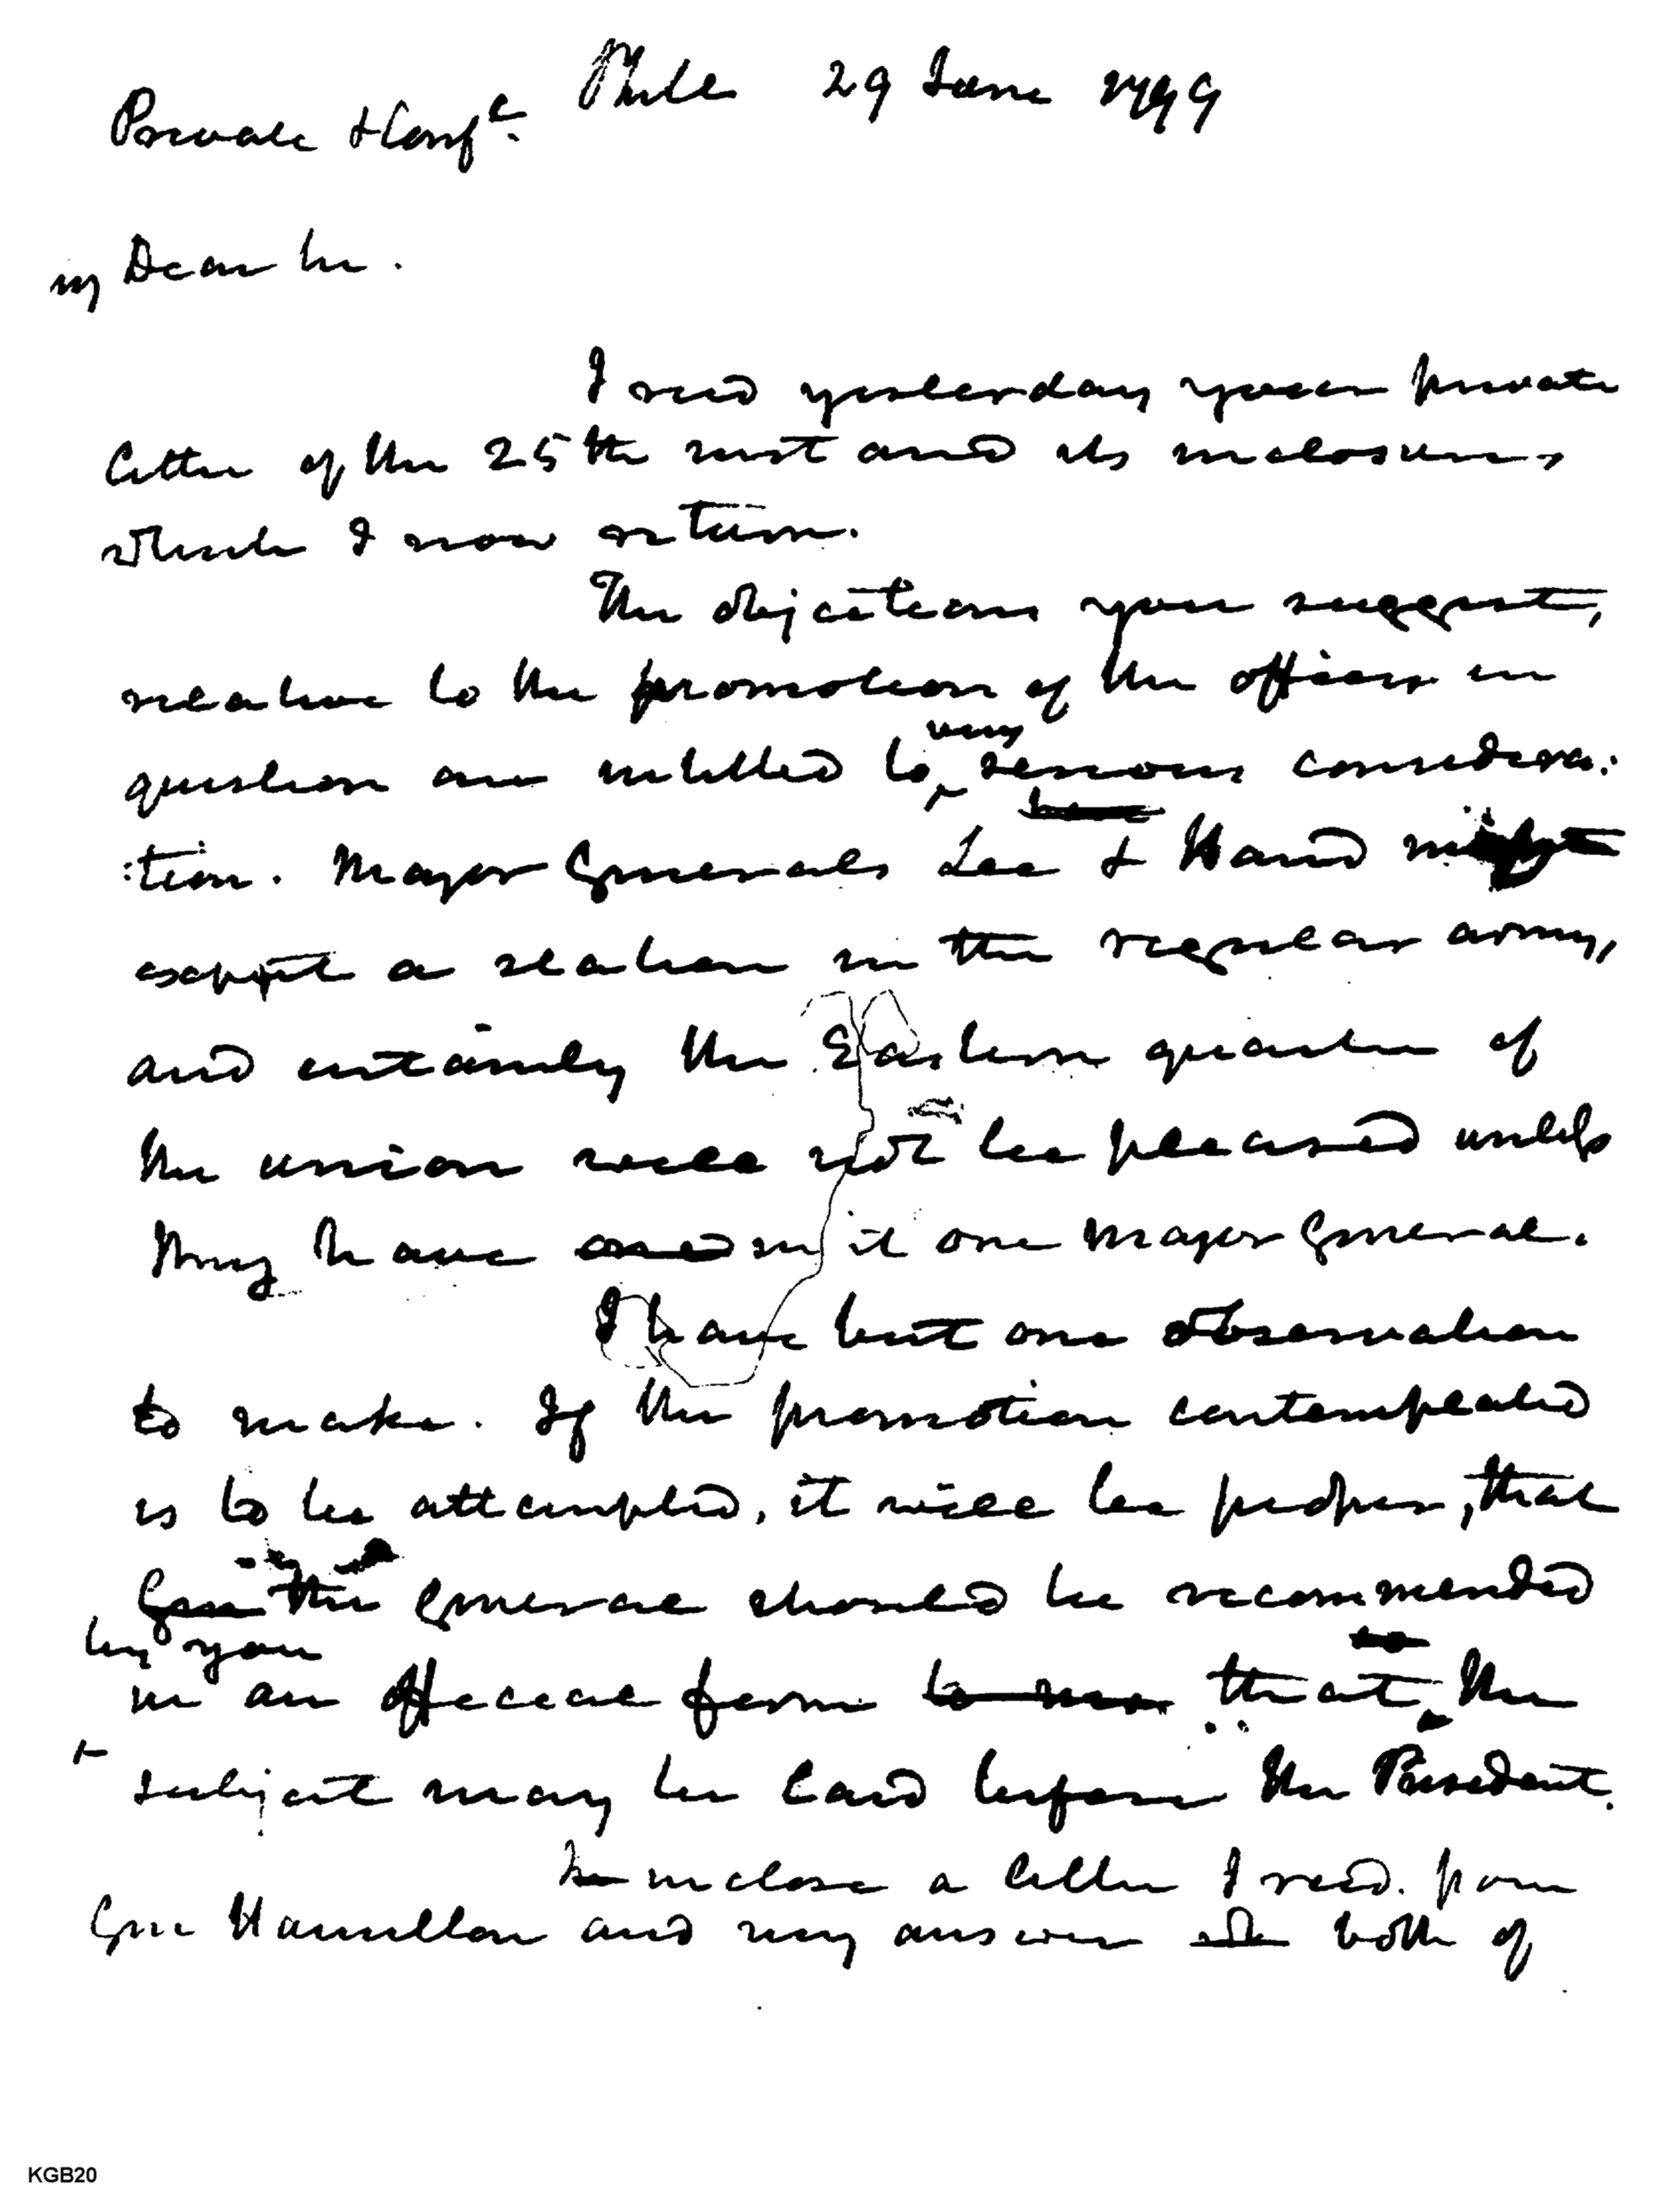 Phila 29 June 1799
Private & Confl.
my Dear Sir.
I recd yesterday your private
letter of the 25th inst and its inclosure,
which I now return.
The objections you suggest,
relative to the promotion of the officer in
question are intitled to very serious considera:
:tion. Major Generals Lee & Hand might
expect a station in the regular army,
and certainly the Eastern quarter of
the union will not be pleased unless
they have in it one major General.
I have but one observation
to make. If the promotion contemplated
is to be attempted, it will be proper, that
Gen the General should be recommended
by you
in an official form to me that the
+ subject may be laid before the President.
I inclose a letter I recd. from
Gen Hamilton and my answer both of
KGB20